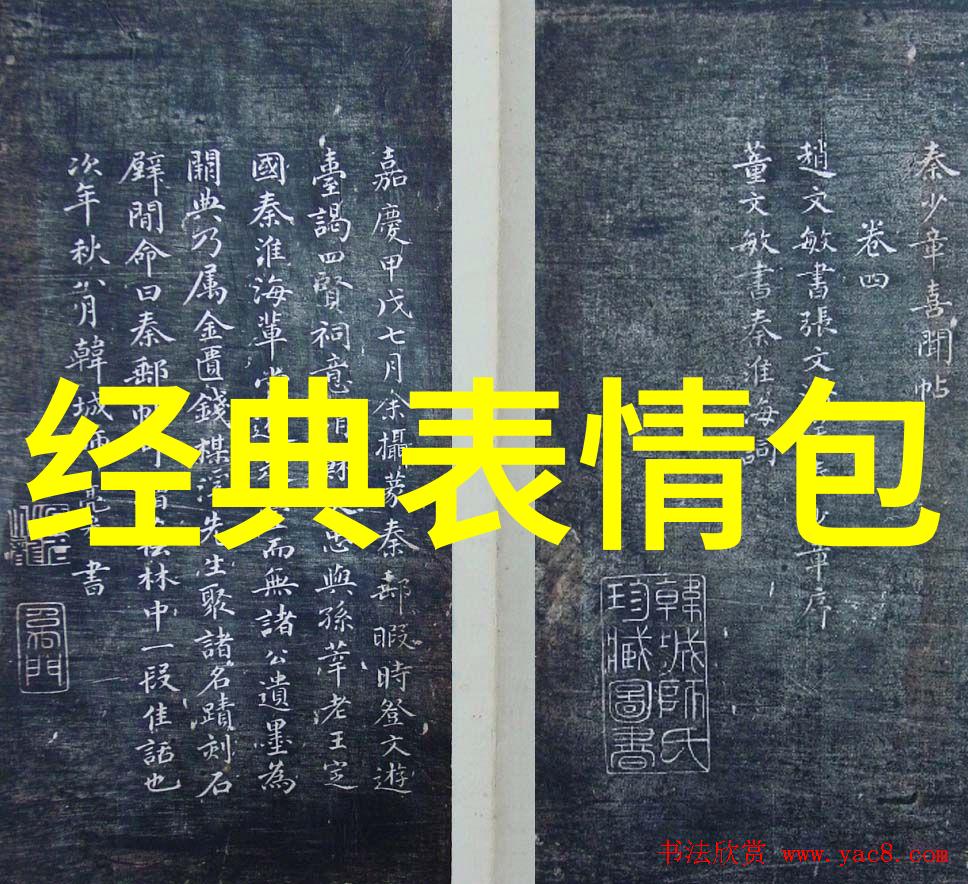 经典表情包
秦少章喜聞帖
卷四
趙文敏書張文 少章序
董文敏書秦淮海詞
韓城師氏珍臧圖書
嘉慶甲戌七月余攝篆秦郵暇時登文遊
臺謁四賢祠意 忠與孫莘老王定
國秦淮海輩 而無諸公遺墨為
闕典乃属金匱錢楳谿先生聚諸名蹟刻石
壁間命曰秦郵帖 林中一段佳話也
次年秋八月韓城師亮采書
书法欣赏 www.yac8.com